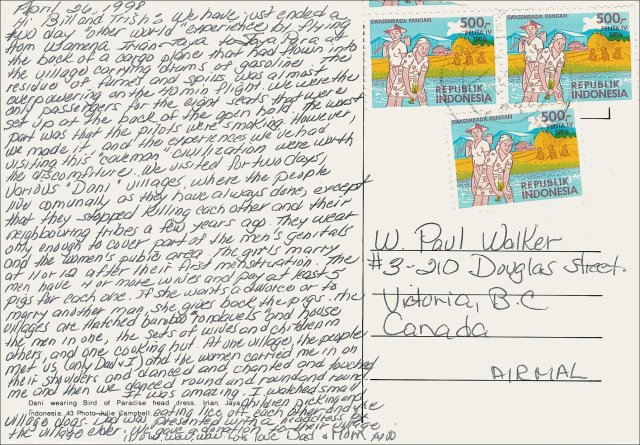 April 26, 1998
Hi Bill and Trish: We have just ended a
two day "other world" experience by flying
from Wamena Irian-Jaya to Jaya Pura at
the back of a cargo plane that had flown into
the village carrying drums of gasoline. The
residue of fumes and spills was almost
overpowering on the 40 min flight. We were the
only passengers for the eight seats that were
set up at the back of the open hold. The worst
part was that the pilots were smoking. However,
we made it, and the experiences we've had
visiting this "caveman" civilization were worth
the discomfiture. We visited for two days,
various "Dani" villages, where the people
live comunally as they have always done, except
that they stopped killing each other and their
neighbouring tribes a few years ago. They wear
only enough to cover part of the men's genitals
and the women's pubic area. The girls marry
at 11 or 12 after their first menstruation. The
men have 4 or more wives and pay at least 5
pigs for each one. If she wants a divorce or to
marry another man, she gives back the pigs. The
villages are thatched bamboo rondavels and house
the men in one, the sets of wives and children in
others, and one cooking hut. At one village, the people
met us, (only Dad & I) and the women carried me in on
their shoulders and danced and chanted and touched
me and then we danced round and round and round.
It was amazing. I watched small
Dani wearing Bird of Paradise head dress. Irian Jaya
children picking and
Indonesia 43 Photo Julie Campbell
eating lice off each other and the
village dogs. Dad was presented with a headdress by
the village elder. We gave a donation to their village.
wow, wow, wow love Dad & Mom
SWASEMBADA PANGAN
500,-
PELITA IV
REPUBLIK
INDONESIA
SWASEMBADA PANGAN
500,-
PELITA IV
REPUBLIK
INDONESIA
SWASEMBADA PANGAN
500,-
PELITA IV
REPUBLIK
INDONESIA
W. Paul Walker
#3-210 Douglas Street
Victoria, B.C
Canada
AIRMAL